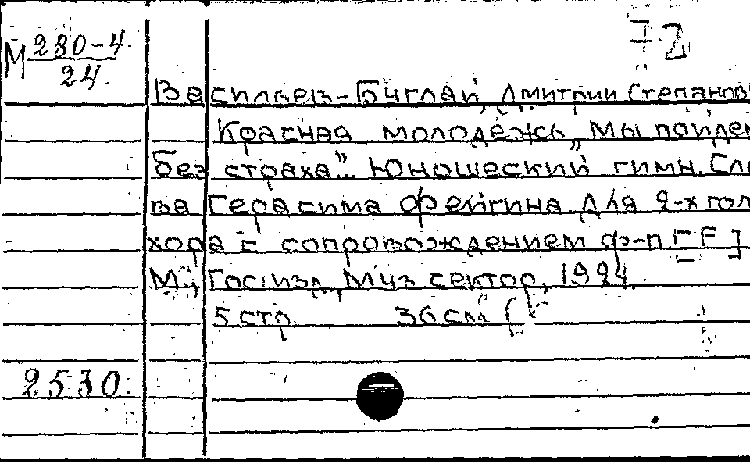 7-2
М 280-4.
24.
Васильев-Буглай, Дмитрий Степанов
Красная молодежь „Мы пойдем
без страха". Юношеский гимн. Сло
ва Герасима Фейгина. Для 2-х гол
хора с сопровождением ф-п [F F]
М., Госизд., Муз сектор, 1924.
5 стр 36 см
2530.